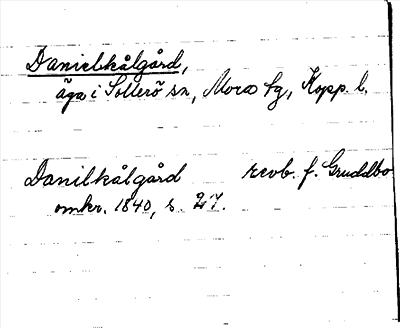 Danielkålgård,
äga i Sollerö sn, Mora tg, Kopp. l.
Danilkålgård revb. f. Gruddbo
omkr. 1840, s. 27.